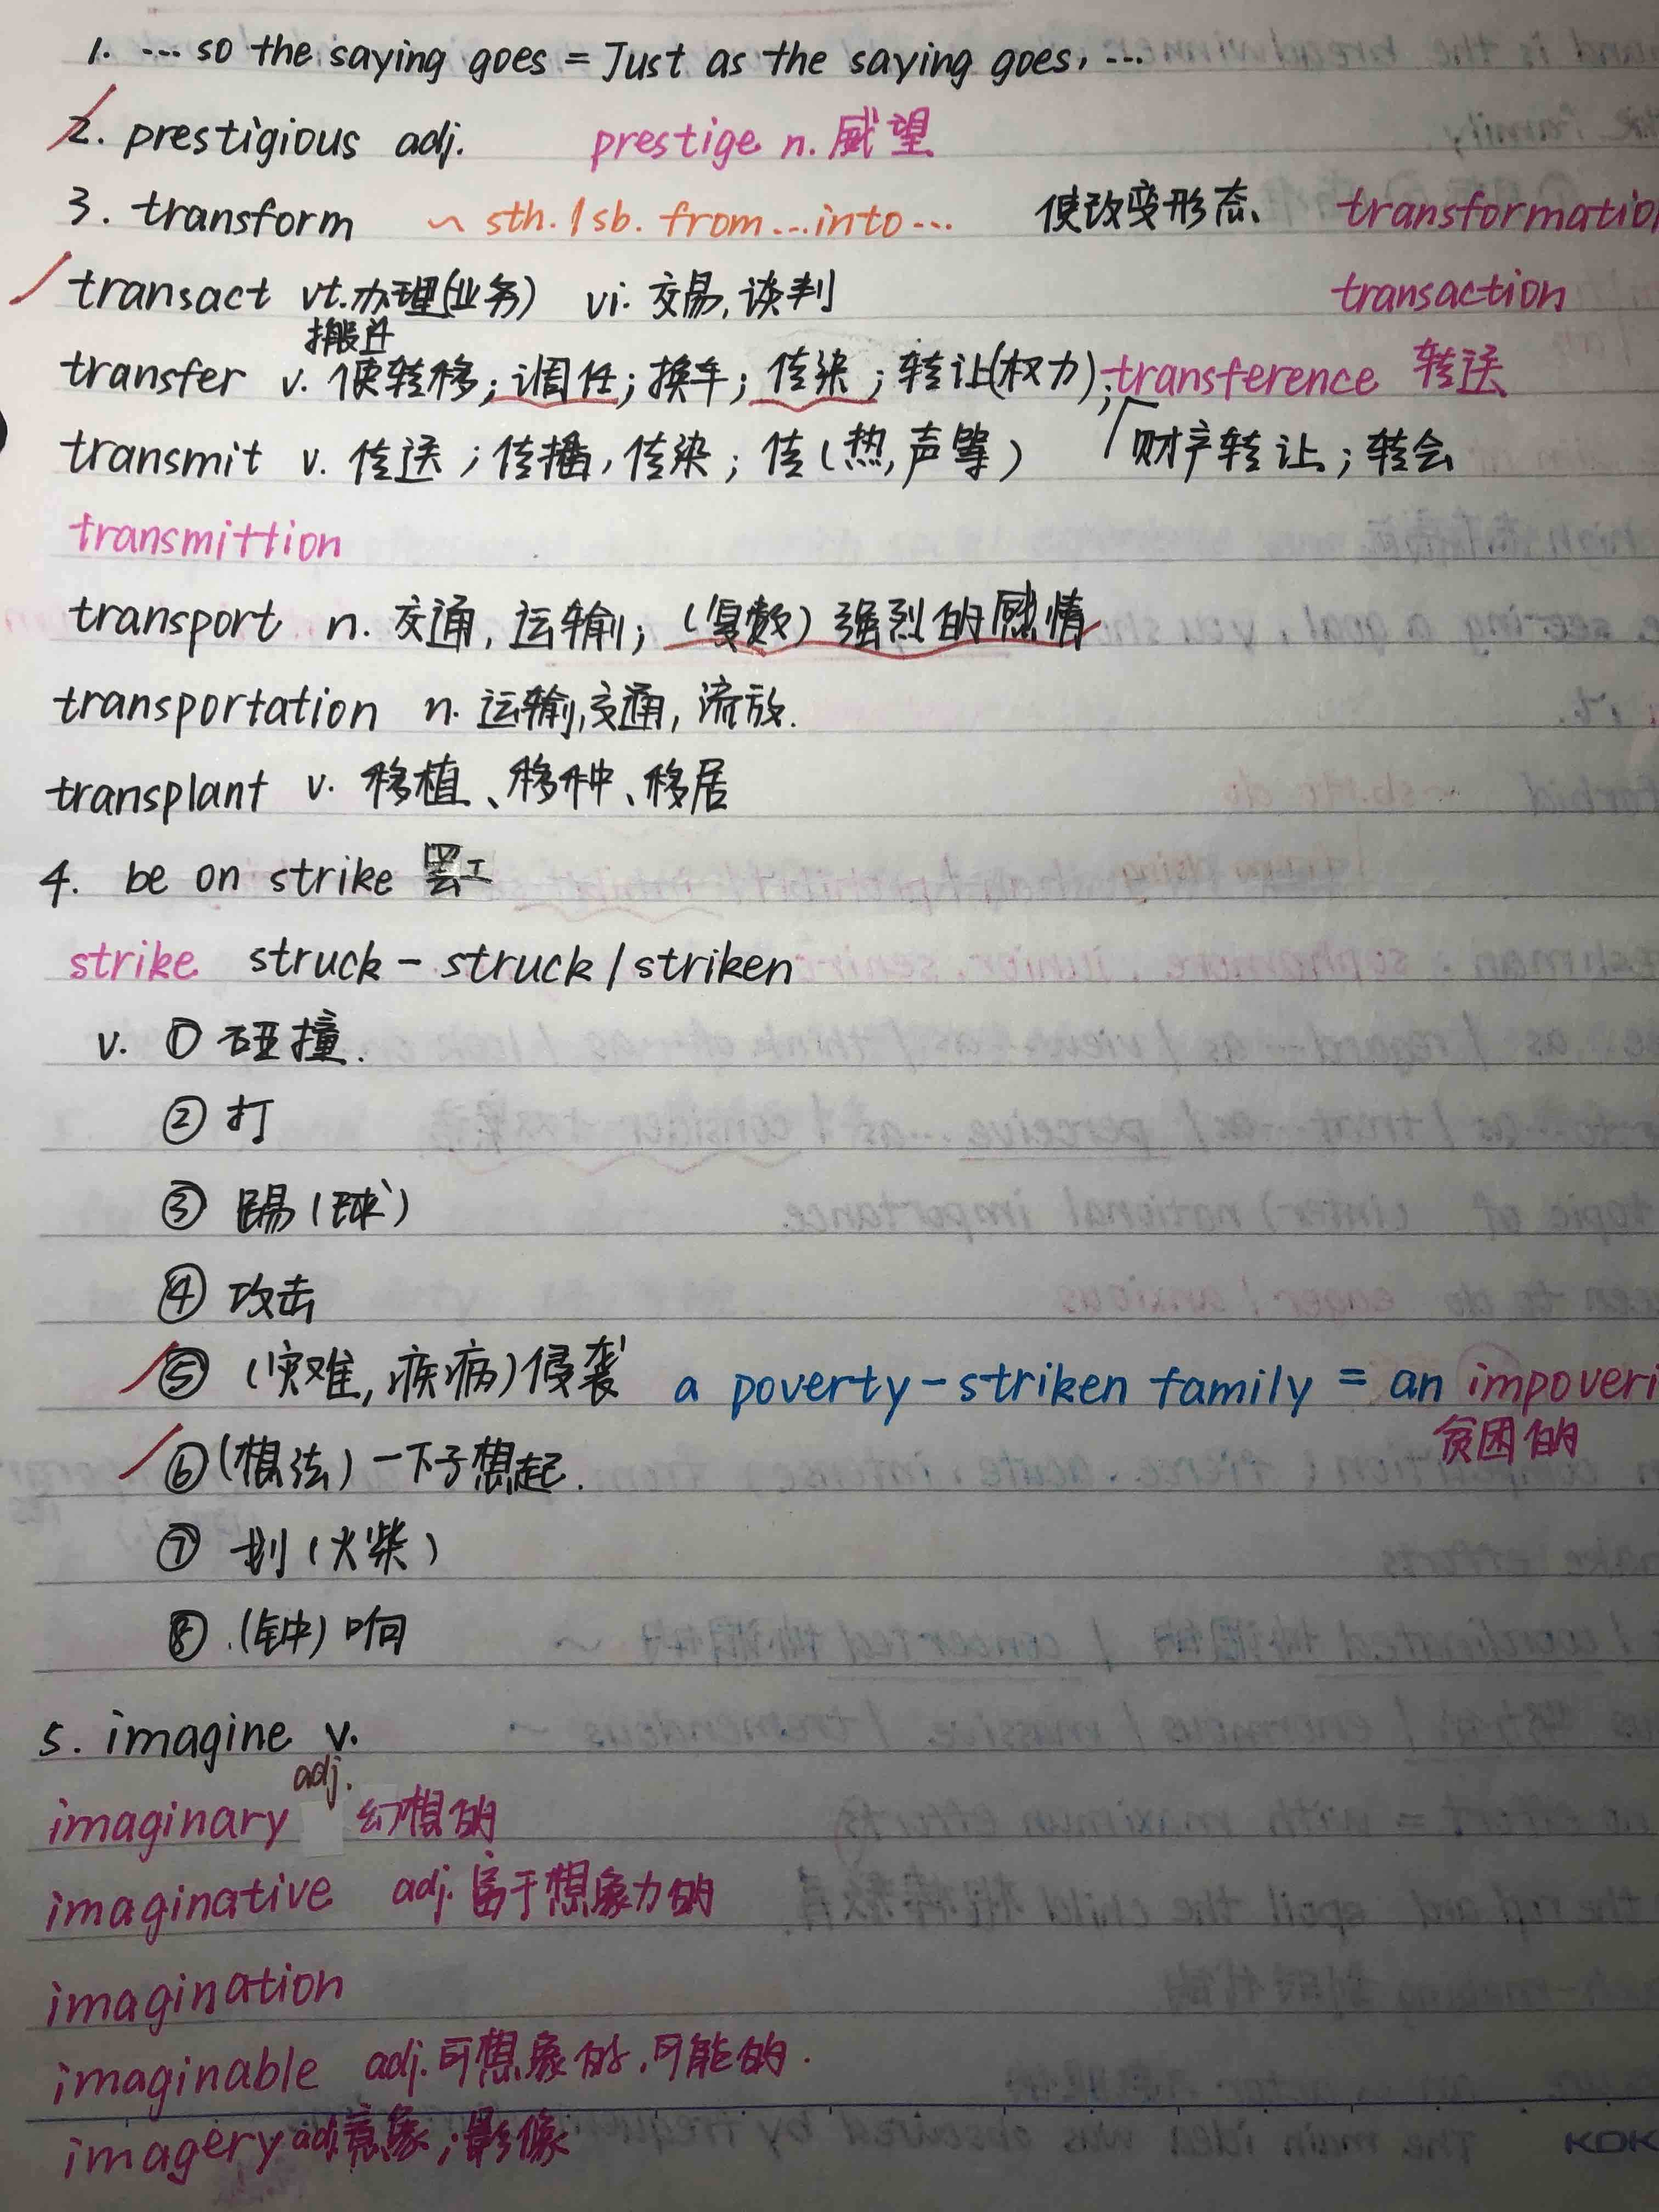 1. --- so the saying goes = Just as the saying goes, ---
2. prestigious adj. prestige n. 威望
3. transform ~ sth. / sb. from...into... 使改变形态、 transformatio
transact vt.办理(业务) vi. 交易,谈判 transaction
搬迁
transfer v. 使转移;调任;换车;传染;转让(权力); transference 转送
transmit v. 传送;传播,传染;传(热,声等) 财产转让;转会
transmittion
transport n. 交通,运输;(复数)强烈的感情
transportation n. 运输,交通,流放.
transplant v. 移植、移种、移居
4. be on strike 罢工
strike struck - struck / striken
v. ① 碰撞.
② 打
③ 踢(球)
④ 攻击
⑤ (灾难,疾病)侵袭 a poverty-striken family = an impoveri
贫困的
⑥ (想法)一下子想起.
⑦ 划(火柴)
⑧ (钟)响
5. imagine v.
adj.
imaginary 幻想的
imaginative adj. 富于想象力的
imagination
imaginable adj. 可想象的,可能的.
imagery adj. 意象;影像
KOK